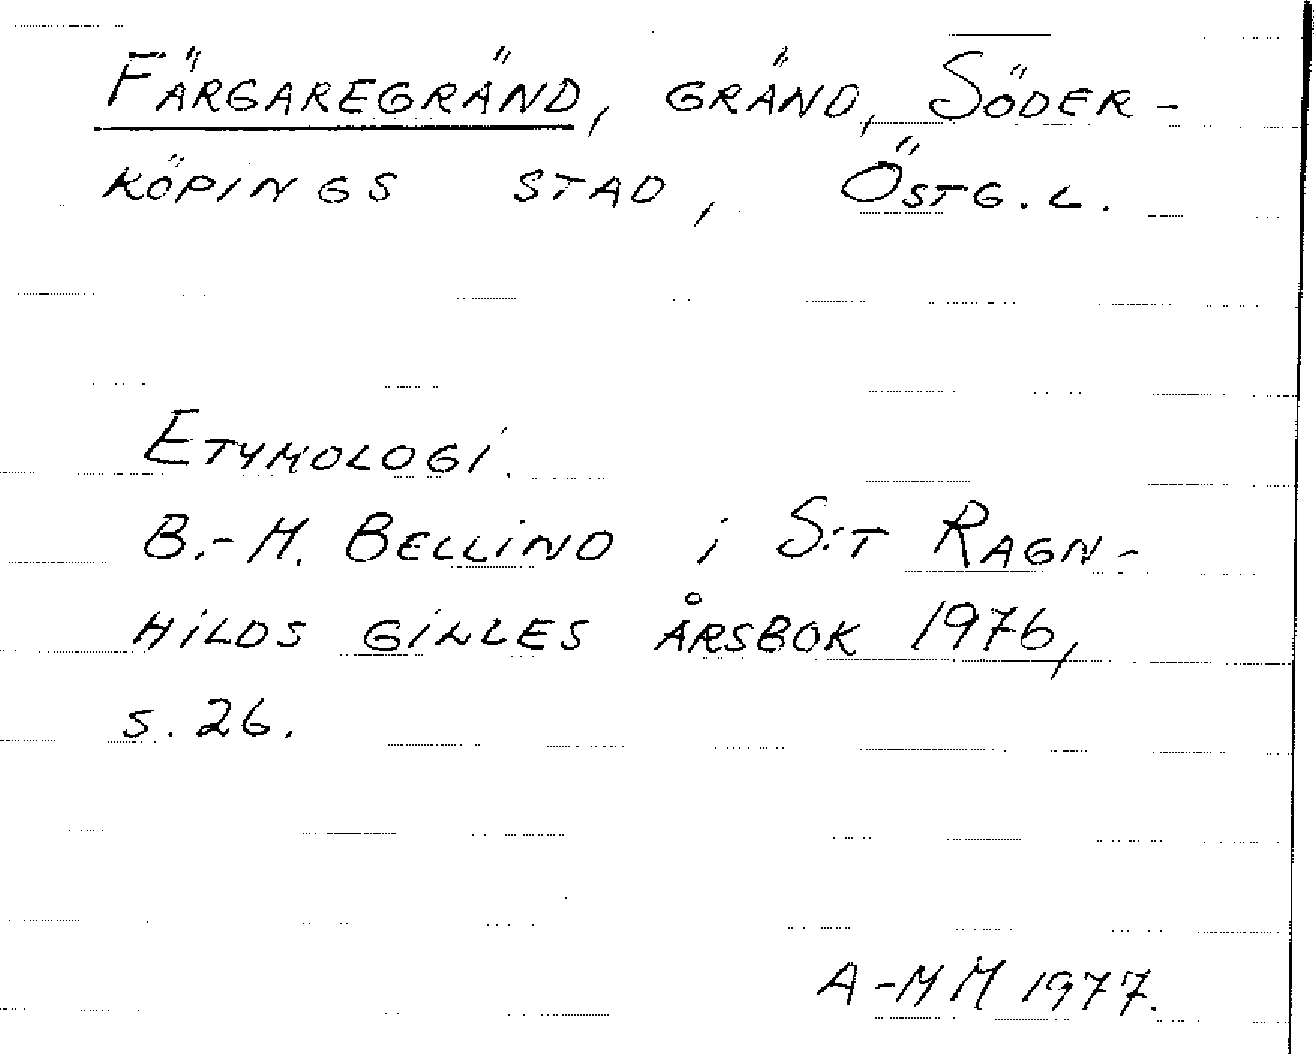 FÄRGAREGRÄND, GRÄND, SÖDER-
KÖPINGS STAD, ÖSTG.L.
ETYMOLOGI.
B.-M. BELLIND i S:T RAGN-
HILDS GILLES ÅRSBOK 1976,
s. 26.
A-MM 1977.